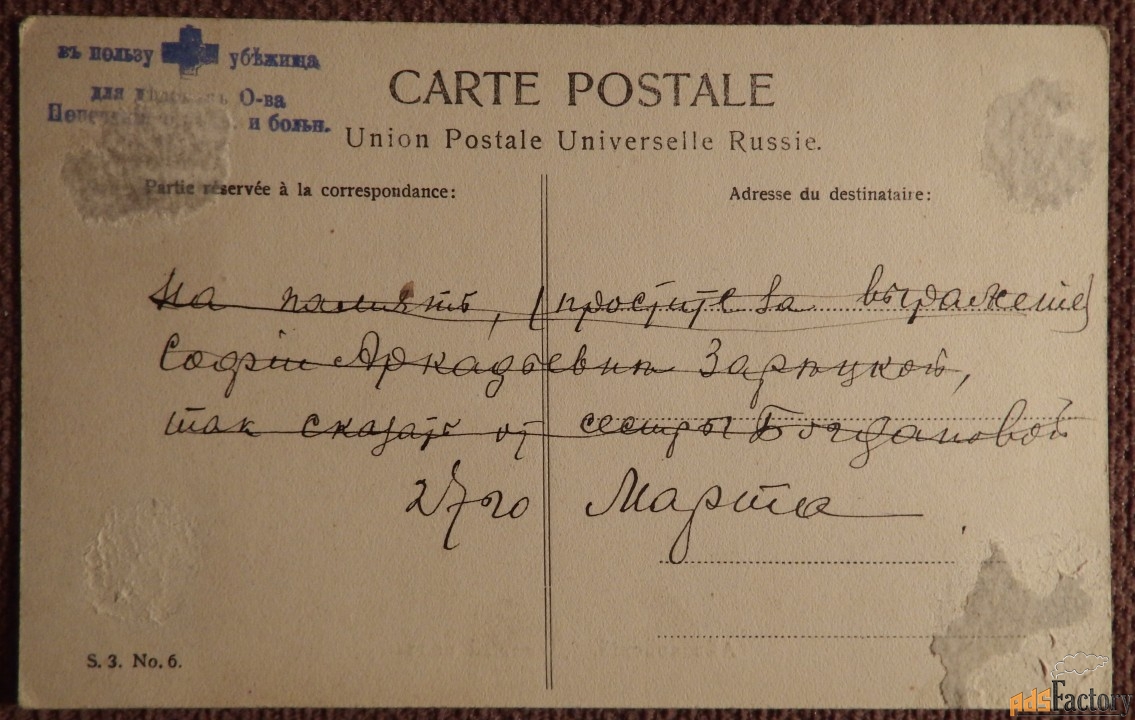 въ пользу убѣжища
для О-ва
и больн.
CARTE POSTALE
Union Postale Universelle Russie.
Partie réservée à la correspondance:
Adresse du destinataire:
На память, (простите за выраженіе)
Софіи Аркадьевнѣ Зарѣцкой,
такъ сказать от сестры Богдановой
27го Марта
S. 3. No. 6.
AdsFactory